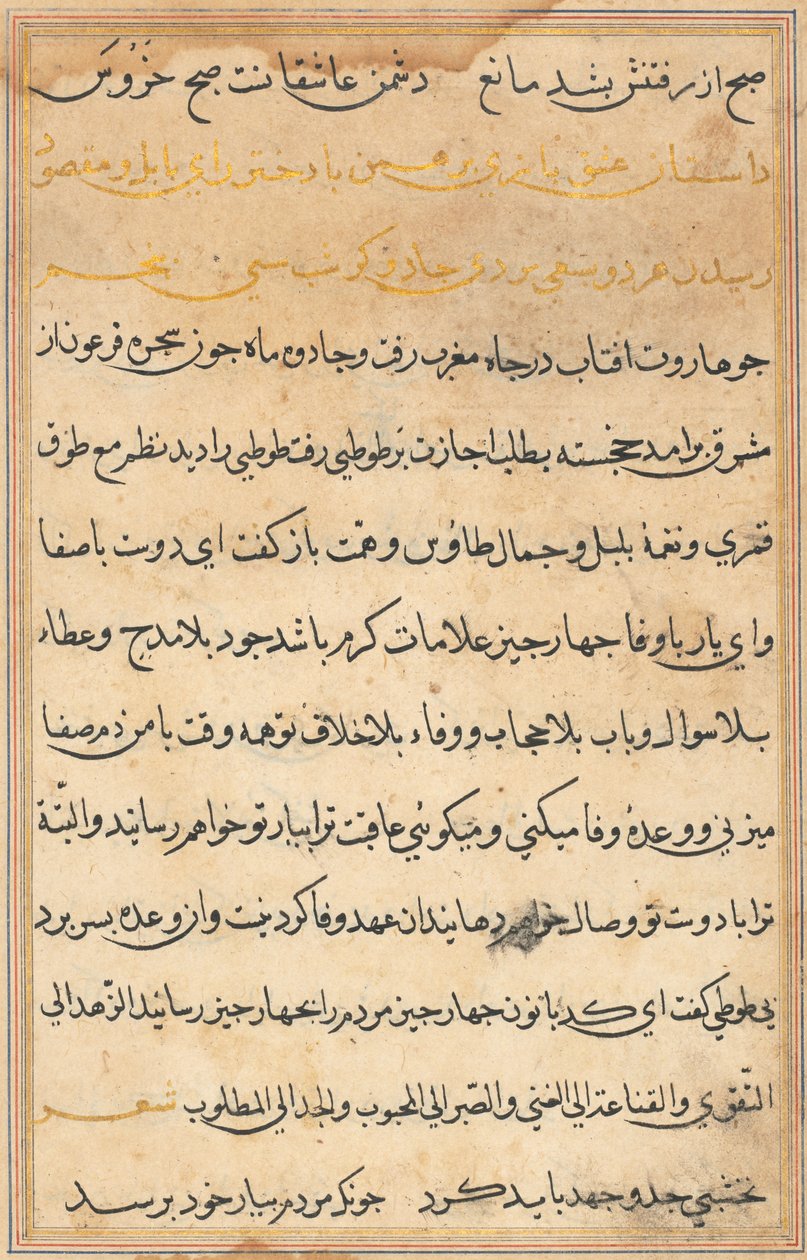 صبح از رفتنش بشد مانع دشمن عاشقانست صبح خَرُوسَ
داستان عشق بازي برهمن با دختر راي بابل و مقصود
رسيدن هر دو بسعي مردي جادوكر شب سي پنجم
جو هاروت افتاب در جاه مغرب رفت و جادوه ماه جون سحره فرعون از
مشرق برامد خجسته بطلب اجازت بَر طوطي رفت طوطي را ديد نظم مع طوق
قمري و نغمهٔ بلبل و جمال طاؤس و همّت باز كفت اي دوست باصفا
واي يار باوفا جهار جيز علامات كرم باشد جود بلا مدح و عطاء
بلا سوال و باب بلا حجاب و وفاء بلا خلاف تو همه وقت با من دم صفا
ميزني و وعدهٔ وفا ميكني و ميكوئي عاقبت ترا بيار تو خواهم رسانيد و البتّة
ترا با دوست تو وصال خواهم دهانيد ان عهد وفا كردنيست و ان وعده بسر برد
ني طوطي كفت اي كدبانون جهار جيز مردم را بجهار جيز رسانيد الزّهد الي
التّقوي و القناعة الي الغني و الصّبر الي المحبوب و الجد الي المطلوب شعر
نخشبي جد و جهد بايد كرد جونكه مردم بيار خود برسد